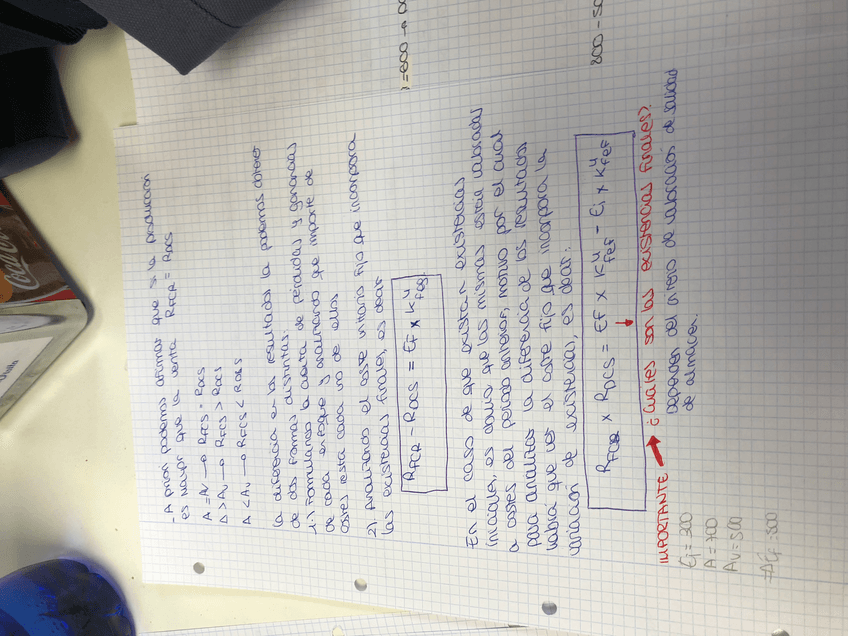 - A priori podemos afirmar que si la producción
es mayor que la venta RFCR = RDCS
A = Av → RFCS = RDCS
A > Av → RFCS > RDCS
A < Av → RFCS < RDCS
La diferencia en los resultados la podemos obtener
de dos formas distintas:
1.) Formulando la cuenta de pérdidas y ganancias
de cada enfoque y analizando que importe de
costes resta cada uno de ellos
2) Analizando el coste unitario fijo que incorpora
las existencias finales, es decir
RFCR - RDCS = Ef x K
En el caso de que existan existencias
iniciales, es obvio que las mismas están valoradas
a costes del período anterior, motivo por el cual
para analizar la diferencia de los resultados
habría que ver el coste fijo que incorpora la
variación de existencias, es decir:
RFCR x RDCS = Ef x KuFEF - Ei x KuFEF
IMPORTANTE → ¿Cuáles son las existencias finales?
Dependen del criterio de valoración de salidas
de almacén.
Ei = 300
A = 700
Av = 500
⇒ Ef = 500
) = 600 →
800 - 50
Coca-Cola